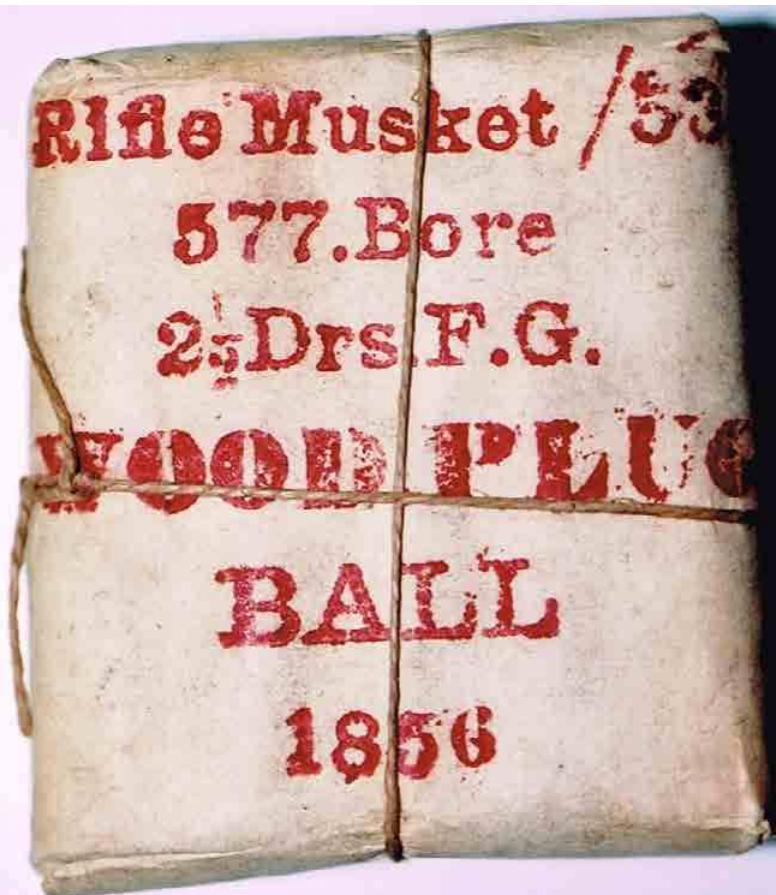 Rifle Musket /53
577.Bore
2½Drs.F.G.
WOOD PLUG
BALL
1856